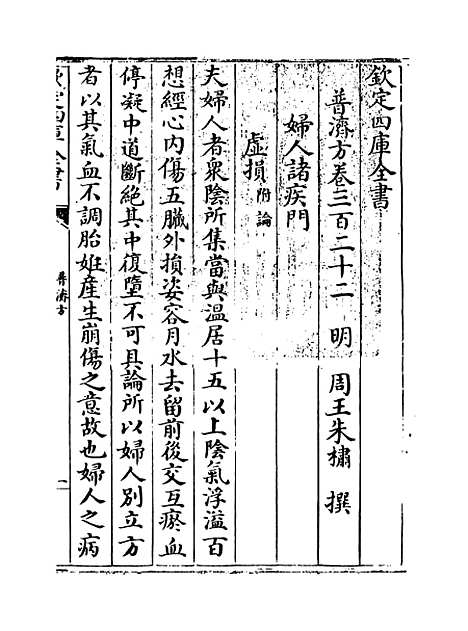 欽定四庫全書
普濟方卷三百二十二 明 周王朱橚 撰
婦人諸疾門
虛損附論
夫婦人者衆陰所集當與溫居十五以上陰氣浮溢百
想經心内傷五臓外損姿容月水去留前後交互瘀血
停凝中道斷絶其中復墮不可具論所以婦人別立方
者以其氣血不調胎姙産生崩傷之意故也婦人之病
欽定四庫全書
普濟方
一